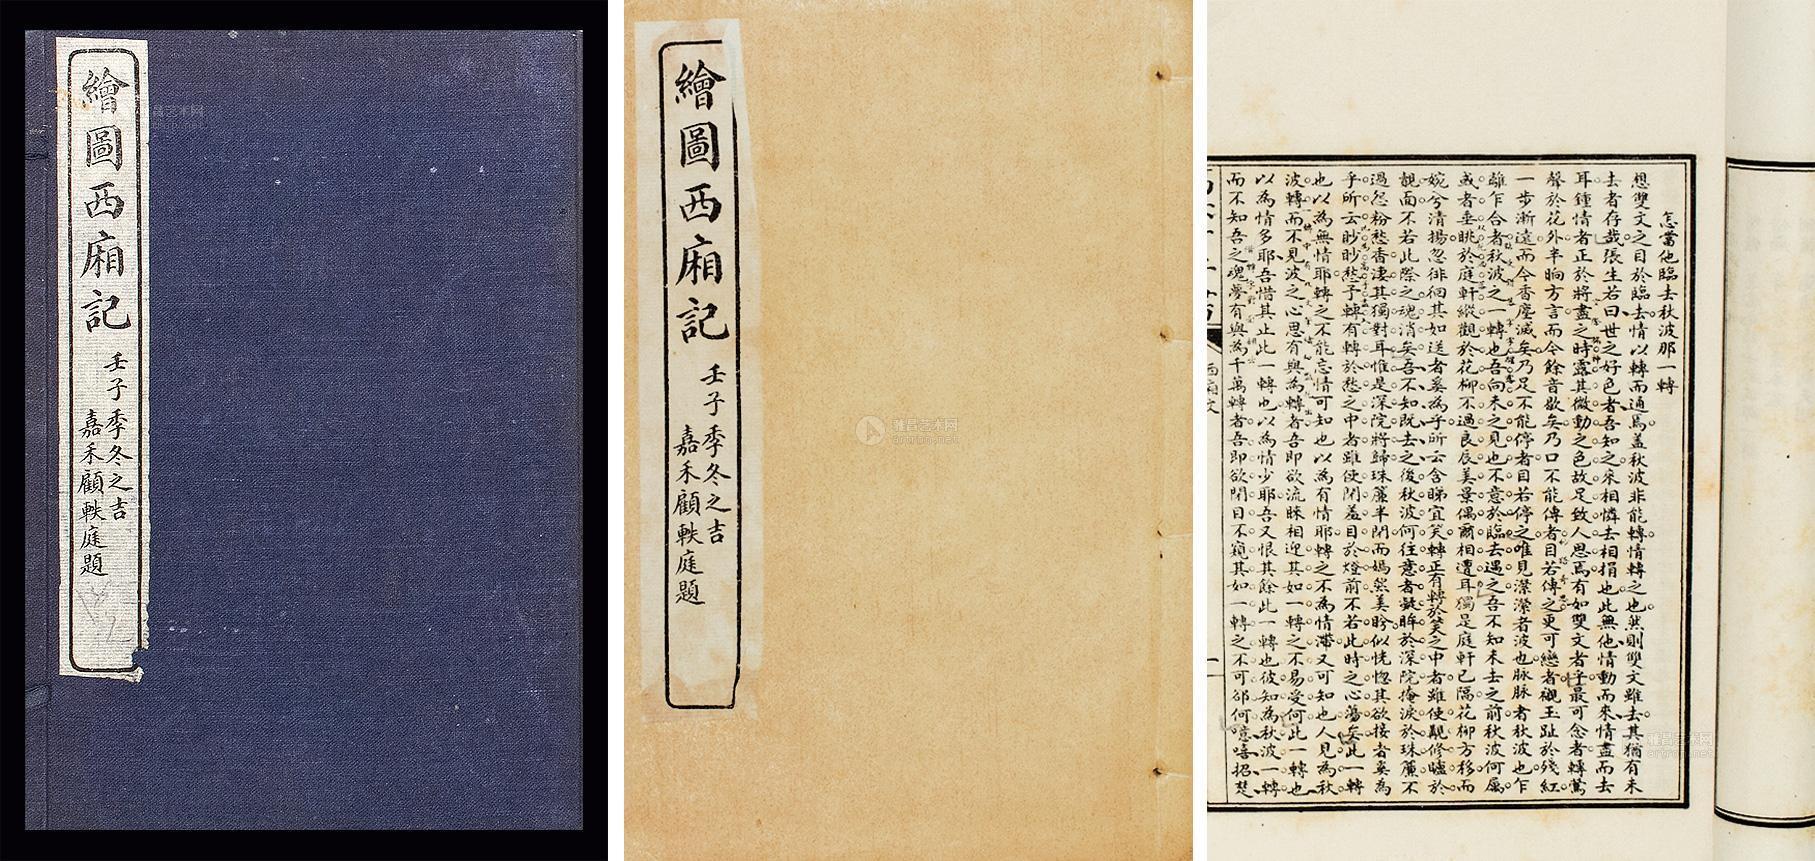 繪圖西廂記
壬子季冬之吉
嘉禾顧軼庭題
繪圖西廂記
壬子季冬之吉
嘉禾顧軼庭題
雅昌艺术网
artron.net
怎當他臨去秋波那一轉
想雙文之目於臨去情以轉而通焉盖秋波非能轉情轉之也然則雙文雖去其猶有未
去者存哉張生若曰世之好色者吾知之來相憐去相捐也此無他情動而來情盡而去
耳鍾情者正於將盡之時露其微動之色故足致人思焉有如雙文者乎最可念者轉鶯
聲於花外半晌方言而今餘音歇矣乃口不能傳者目若傳之更可戀者襯玉趾於殘紅
一步漸遠而今香塵滅矣乃足不能停者目若停之唯見瀠瀠者波也脉脉者秋波也乍
離乍合者秋波之一轉也吾向未之見也不意於臨去遇之吾不知未去之前秋波何屬
或者垂眺於庭軒縱觀於花柳不過良辰美景偶爾相遭耳獨是庭軒已隔花柳方移而
婉兮清揚忽徘徊其如送者奚為乎所云含睇宜笑轉正有轉於笑之中者雖使覯修矑於
覯面不若此際之魂消矣吾不知既去之後秋波何往意者凝眸於深院掩淚於珠簾不
過怨粉愁香凄其獨對耳惟是深院將歸珠簾半閉而嫣然美盼似恍惚其欲接者奚為
乎所云眇眇愁予轉有轉於愁之中者雖使閉羞目於燈前不若此時之心蕩矣此一轉
也以為無情耶轉之不能忘情可知也以為有情耶轉之不為情滯又可知也人見為秋
波轉而不見波之心思有與為轉者吾即欲流眛相迎其如一轉之不易受何此一轉也
以為情多耶吾惜其止此一轉也以為情少耶吾又恨其餘此一轉也彼知為秋波一轉
而不知吾之魂夢有與為千萬轉者吾即欲閉目不窺其如一轉之不可郤何噫嘻招楚
西廂文
一
雅昌艺术网
artron.net